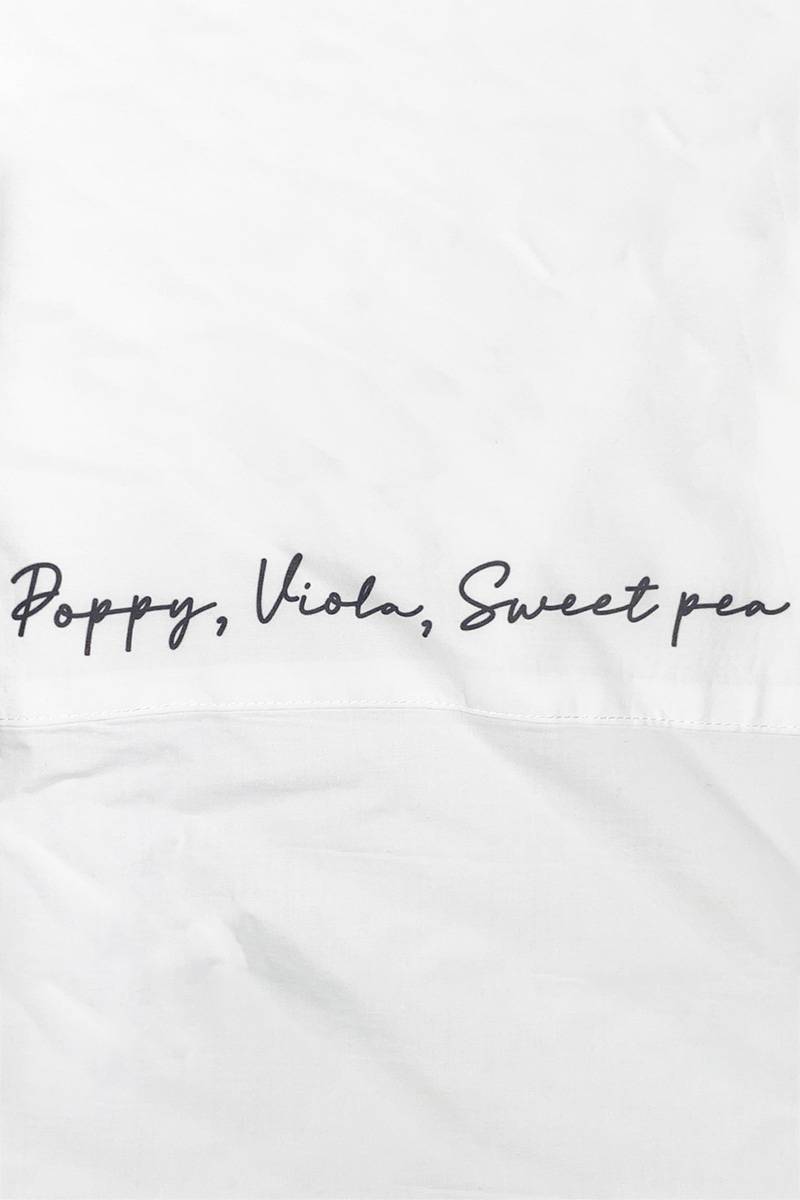 Poppy, Viola, Sweet pea